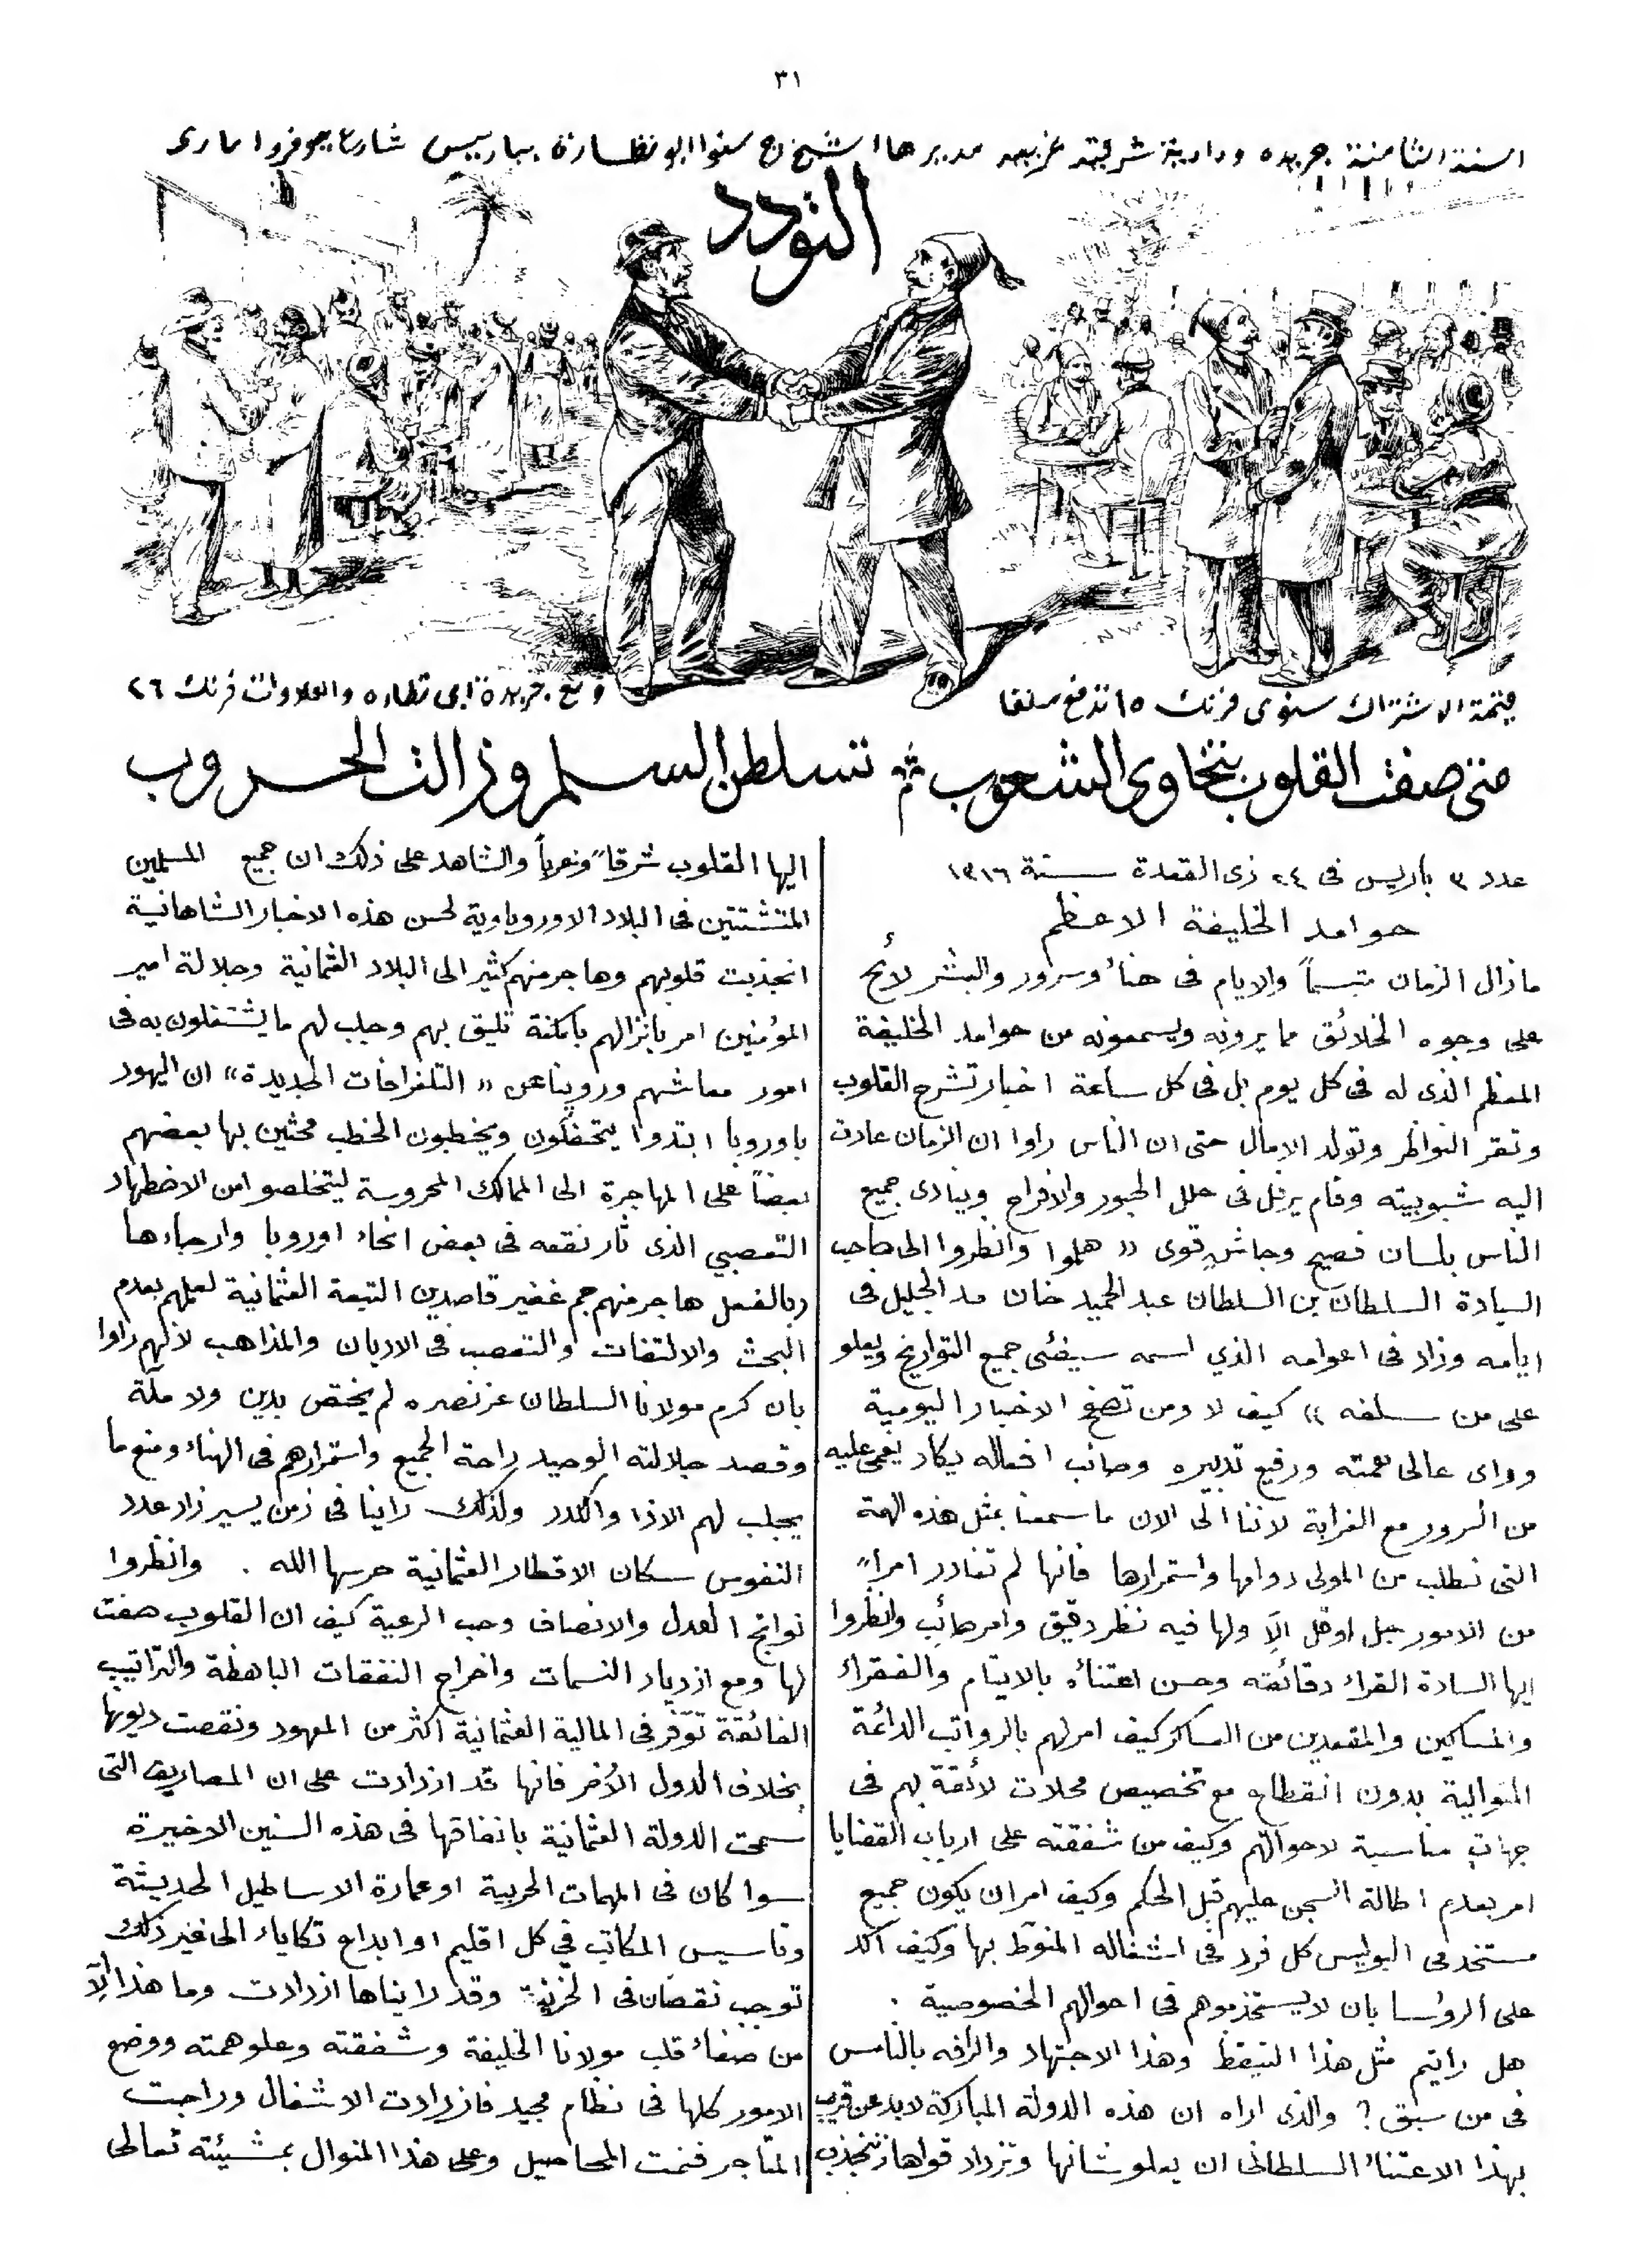 ٣١
السنة الثامنة جريده ودادية شرقية غربيه مديرها الشيخ ج سنوا ابو نظارة بباريس شارع جوفروا مارى
التودد
قيمة الاشتراك سنوى فرنك ١٥ تدفع سلفا
ومع جريدة ابى نظاره والعلاوات فرنك ٢٦
متى صفت القلوب بتخاوى الشعوب تسلطن السلم وزالت الحروب
عدد ٣ باريس فى ٢٤ ذى القعدة سنة ١٣١٦
حوامد الخليفة الاعظم
مازال الزمان متبسماً والايام فى هناء وسرور والبشر لائح
على وجوه الخلائق مما يرونه ويسمعونه من حوامد الخليفة
المعظم الذى له فى كل يوم بل فى كل ساعة اخبار تشرح القلوب
وتقر النواظر وتولد الامال حتى ان الناس راوا ان الزمان عادت
اليه شبوبيته وقام يرفل فى حلل الحبور والافراح وينادى جميع
الناس بلسان فصيح وجاش قوى « هلموا وانظروا الى صاحب
السيادة السلطان بن السلطان عبد الحميد خان مد الجليل فى
ايامه وزاد فى اعوامه الذي اسمه سيفنى جميع التواريخ ويعلو
على من سلفه » كيف لا ومن تصفح الاخبار اليومية
وراى عالى همته ورفيع تدبيره وصائب افعاله يكاد يغمى عليه
من السرور مع الغرابة لاننا الى الان ما سمعنا بمثل هذه الهمة
التى نطلب من المولى دوامها واستمرارها فانها لم تغادر امراً
من الامور جل او قل الّا ولها فيه نظر دقيق وامر صائب وانظروا
ايها السادة القراء دقائقه وحسن اعتناه بالايتام والفقراء
والمساكين والمقعدين من العساكر كيف امر لهم بالرواتب الدائمة
المتوالية بدون انقطاع مع تخصيص محلات لائقة بهم فى
جهات مناسبة لاحوالهم وكيف من شفقته على ارباب القضايا
امر بعدم اطالة السجن عليهم قبل الحكم وكيف امر ان يكون جميع
مستخدمى البوليس كل فرد فى اشغاله المنوط بها وكيف اكد
على الرؤسا بان لا يستخدموهم فى احوالهم الخصوصية .
هل رايتم مثل هذا التيقظ وهذا الاجتهاد والرافه بالناس
فى من سبق ؟ والذى اراه ان هذه الدولة المباركة لابد عن قريب
بهذا الاعتناء السلطانى ان يعلو شانها وتزداد قواها وتنجذب
اليها القلوب شرقاً وغرباً والشاهد على ذلك ان جميع المسلمين
المتشتتين فى البلاد الاوروباوية لحسن هذه الاخبار الشاهانية
انجذبت قلوبهم وهاجر منهم كثير الى البلاد العثمانية وجلالة امير
المؤمنين امر بانزالهم بامكنة تليق بهم وجلب لهم ما يشتغلون به فى
امور معاشهم وروينا عن « التلغرافات الجديدة » ان اليهود
باوروبا ابتدوا يتحفلون ويخطبون الخطب محثين بها بعضهم
بعضاً على المهاجرة الى الممالك المحروسة ليتخلصوا من الاضطهاد
التعصبي الذى ثار نقعه فى بعض انحاء اوروبا وارجاءها
وبالفعل هاجر منهم جم غفير قاصدين التبعة العثمانية لعلمهم بعدم
البحث والالتفات والتعصب فى الاديان والمذاهب لانهم راوا
بان كرم مولانا السلطان عز نصره لم يختص بدين ولا ملة
وقصد جلالته الوحيد راحة الجميع واستمرارهم فى الهناء ومنع ما
يجلب لهم الاذا والكدر ولذلك راينا فى زمن يسير زاد عدد
النفوس سكان الاقطار العثمانية حرسها الله . وانظروا
نواتج العدل والانصاف وحب الرعية كيف ان القلوب صفت
لها ومع ازدياد النسمات واخراج النفقات الباهظة والتراتيب
الفائقة توّفر فى المالية العثمانية اكثر من المعهود ونقصت ديونها
بخلاف الدول الأخر فانها قد ازدادت على ان المصاريف التى
سمحت الدولة العثمانية بانفاقها فى هذه السنين الاخيرة
سوا كان فى المهمات الحربية او عمارة الاساطيل الحديثة
وتاسيس المكاتب في كل اقليم او ابداع تكاياء الى غير ذلك
توجب نقصان فى الخزينة وقد رايناها ازدادت وما هذا الّا
من صفاء قلب مولانا الخليفة وشفقته وعلو همته ووضع
الامور كلها فى نظام مجيد فازدادت الاشغال وراجت
المتاجر فنمت المحاصيل وعلى هذا المنوال بمشيئته تعالى